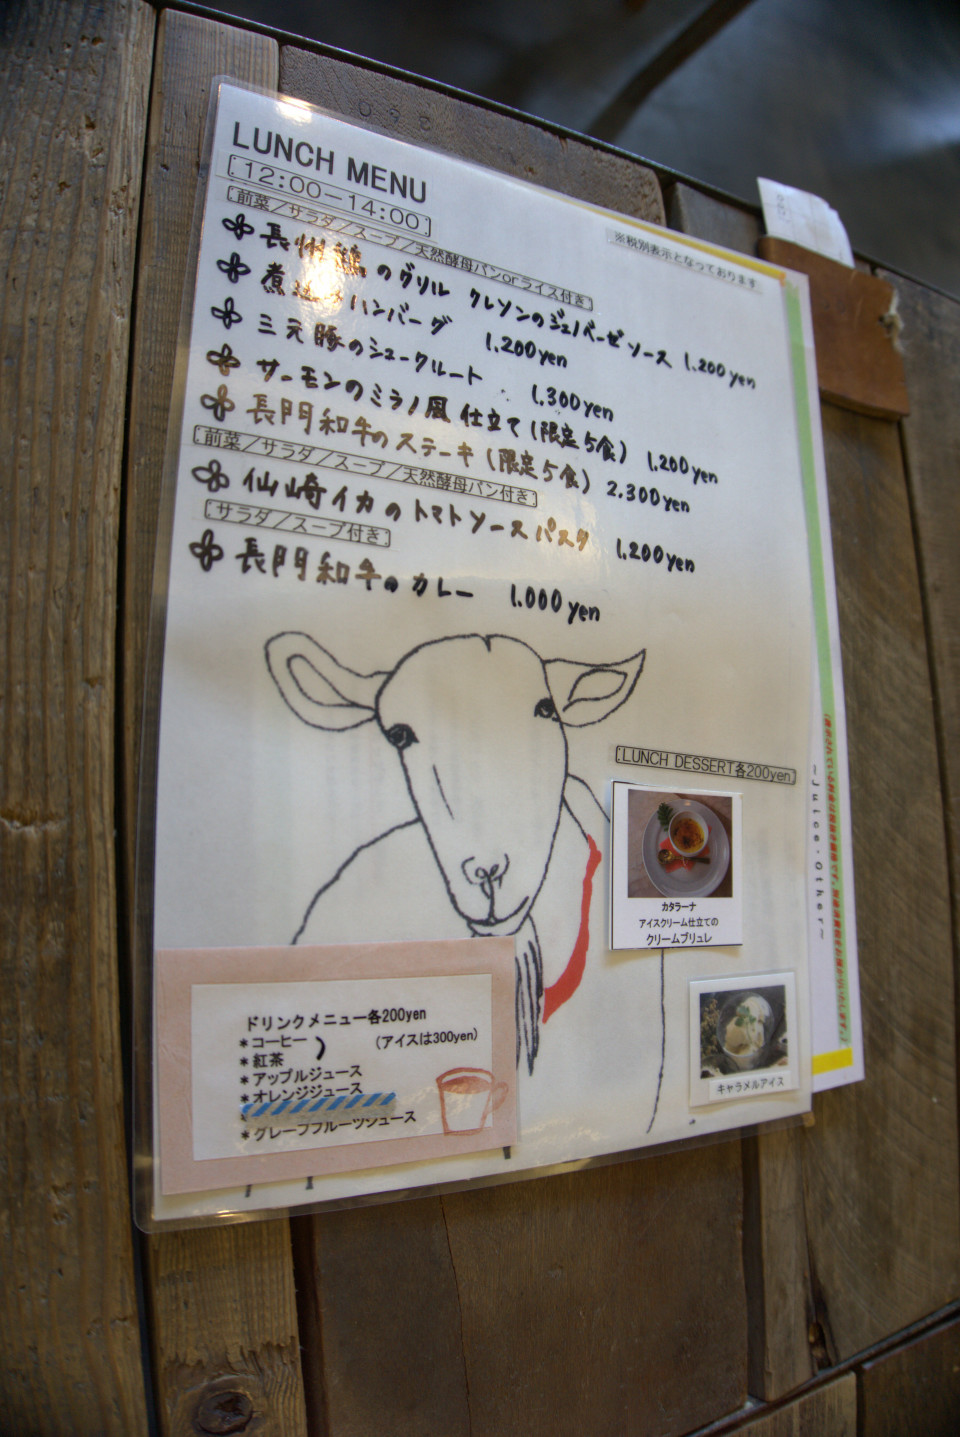 LUNCH MENU
12:00-14:00
※税別表示となっております
前菜/サラダ/スープ/天然酵母パンorライス付き
長州鶏のグリル クレソンのジェノベーゼソース 1,200yen
煮込みハンバーグ 1,200yen
三元豚のシュークルート 1,300yen
サーモンのミラノ風仕立て(限定5食) 1,200yen
長門和牛のステーキ(限定5食) 2,300yen
前菜/サラダ/スープ/天然酵母パン付き
仙崎イカのトマトソースパスタ 1,200yen
サラダ/スープ付き
長門和牛のカレー 1,000yen
LUNCH DESSERT各200yen
カタラーナ
アイスクリーム仕立ての
クリームブリュレ
キャラメルアイス
ドリンクメニュー各200yen
*コーヒー
(アイスは300yen)
*紅茶
*アップルジュース
*オレンジジュース
*グレープフルーツジュース
~Juice・Other~